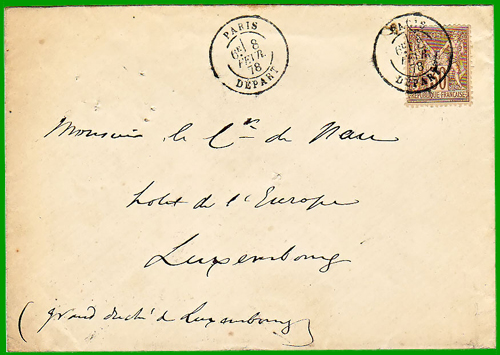 PARIS
6E 8
FEVR.
78
DEPART
PARIS
FEVR
78
DEPART
30
REPUBLIQUE FRANÇAISE
Monsieur le Cte de
hotel de l'Europe
Luxembourg
(grand duché de Luxembourg)